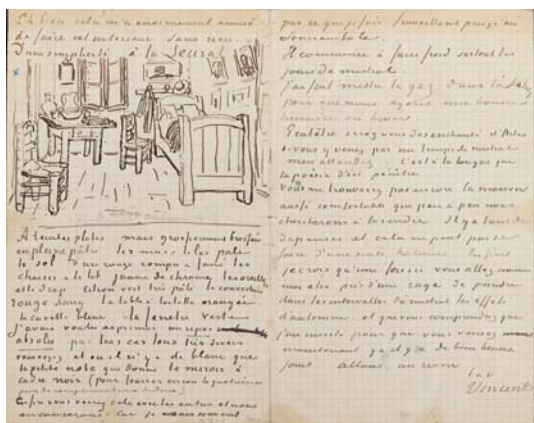 Eh bien cela m'a enormement amusé
de faire cet interieur sans rien.
D'une simplicité à la Seurat.
A teintes plates mais grossierement brossées
en pleine pâte les murs lilas pâle
le sol d'un rouge rompu & fané les
chaises & le lit jaune de chrome, les oreillers
et le drap citron vert très pâle la couverture
rouge sang la table à toilette orangée
la cuvette bleue la fenêtre verte
J'avais voulu exprimer un repos
absolu par tous ces tons très divers
vous voyez et où il n'y a de blanc que
la petite note que donne le miroir à
cadre noir (pour fourrer encore la quatrième
paire de complémentaires dedans)
Enfin vous verrez cela avec les autres et nous
en causerons. Car je ne sais souvent
pas ce que je fais travaillant presqu'en
somnambule.
Il commence à faire froid surtout les
jours de mistral.
J'ai fait mettre le gaz dans
pour que nous ayons une bonne
lumière en hiver
Peutêtre serez vous desenchanté d'Arles
si vous y venez par un temps de mistral
mais attendez.. C'est à la longue que
la poésie d'ici pénètre
Vous ne trouverez pas encore la maison
aussi comfortable que peu à peu nous
chercherons à la rendre. Il y a tant de
depenses et cela ne peut pas se
faire d'une seule haleine. Enfin
je crois qu'une fois ici vous allez comme
moi etre pris d'une rage de peindre
dans les intervalles du mistral les effets
d'automne. et que vous comprendrez que
j'aie insisté pour que vous veniez
maintenant qu'il y a de bien beaux
jours allons au revoir
Vincent